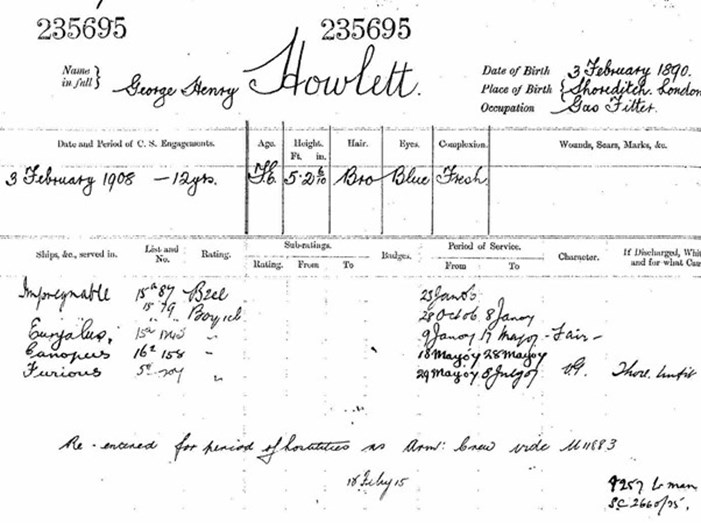 235695 235695
Name in full} George Henry Howlett.
Date of Birth 3 February 1890.
Place of Birth {Shoreditch. London
Occupation Gas Fitter.
Date and Period of C. S. Engagements. Age. Height. Hair. Eyes. Complexion. Wounds, Scars, Marks, &c.
Ft. in.
3 February 1908 — 12 yrs. 5. 2 Bro Blue Fresh.
Ships, &c., served in. List and No. Rating. Sub-ratings. Badges. Period of Service. Character. If Discharged, Whi
and for what Cau
Rating. From To From To
Impregnable 15a 87 B2cl
15a 79 Boy 1cl 28 Oct 06 8 Jan 07
Euryalus, 15a 9 Jan 07 17 May 07 - Fair -
Canopus 16a 158 " 18 May 07 28 May 07
Furious " 29 May 07 VG.
Re-entered for period of hostilities as Crew vide M11883
16 Feby 15